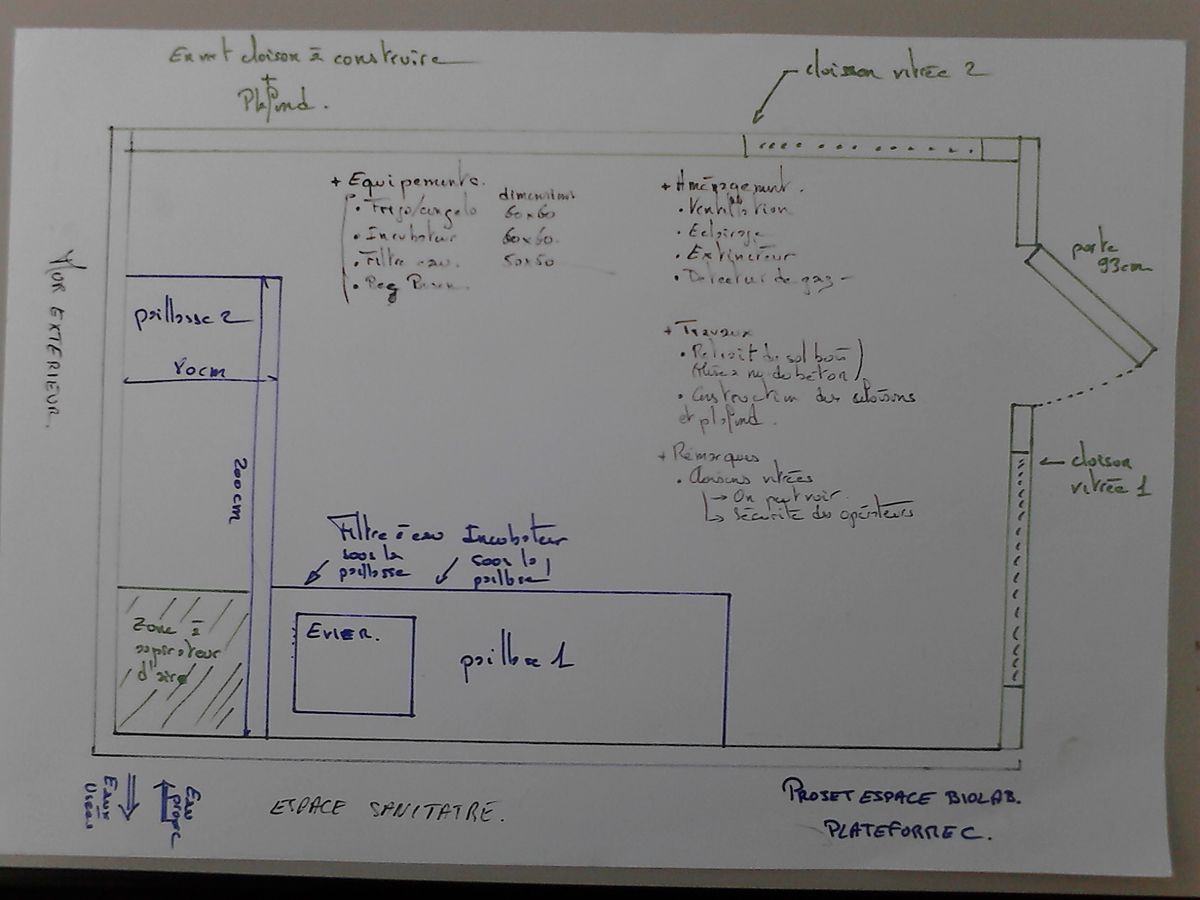 En vert cloison à construire
+
Plafond.
cloison vitrée 2
+ Equipements.
dimensions
• Frigo/congelo 60x60
• Incubateur 60x60
• Filtre eau. 50x50
+ Aménagement.
• Ventilation
• Eclairage
• Extincteur
• Detecteur de gaz
porte
93cm
MUR EXTERIEUR.
paillasse 2
80cm
200cm
+ Travaux
• Retrait du sol bois
(Mise à nu du béton)
• Construction des cloisons
et plafond.
+ Remarques
• Cloisons vitrées
→ On peut voir.
→ Sécurité des opérateurs
cloison
vitrée 1
Filtre à eau
sous la
paillasse
Incubateur
sous la
paillasse
Zone à
aspirateur
d'aire
EVIER.
paillasse 1
Eaux
Usées
Eau
propre
ESPACE SANITAIRE.
PROJET ESPACE BIOLAB.
PLATEFORME C.